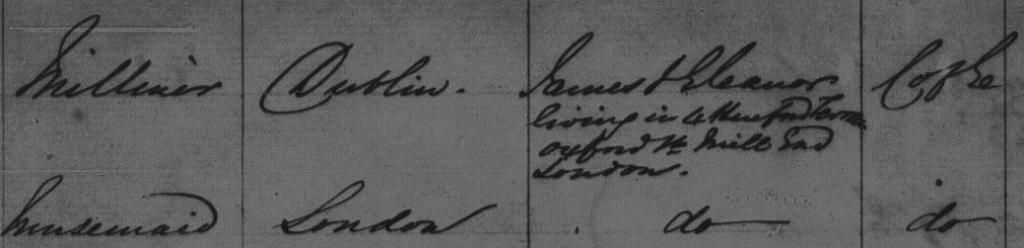 Milliner Dublin. James & Eleanor C of E
living in 6 Hereford Terrace
oxford St Mile End
London.
housemaid London do do